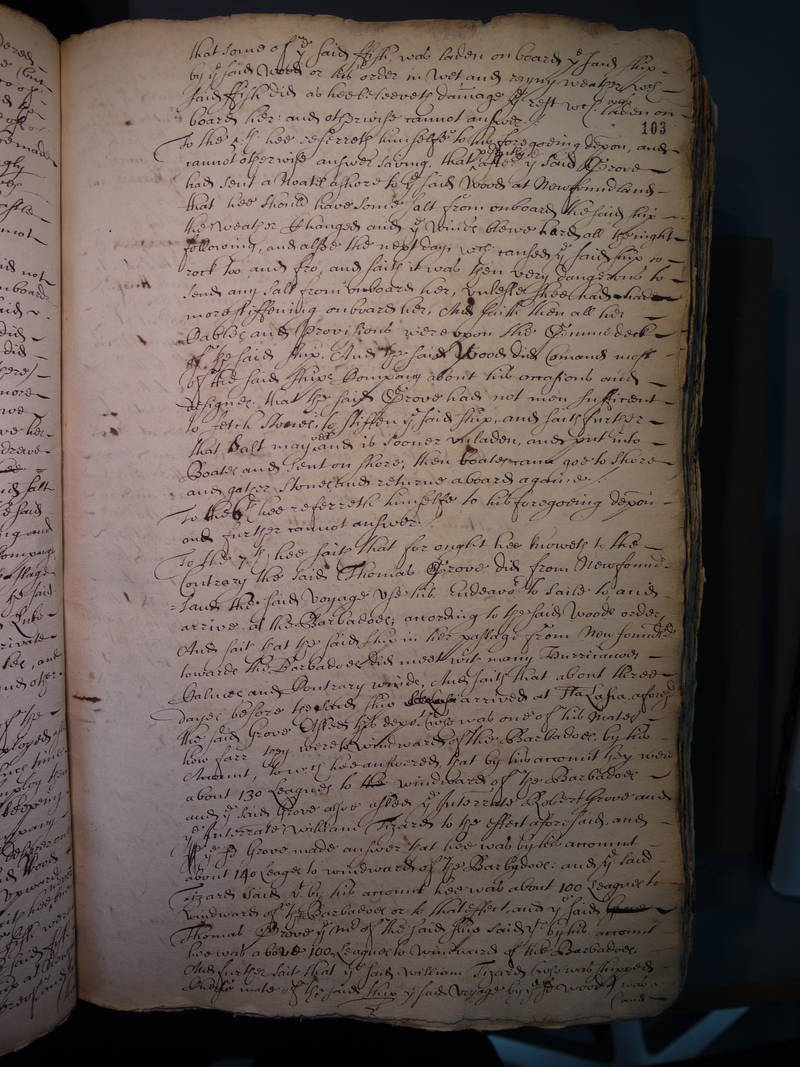 that some of ye said ffish was laden on board ye said ship
by ye said Wood or his order in wet and raynye weather wch
said ffish did as hee beleeveth damage ye rest wch was laden on
board her and otherwise cannot answer.
103
To the 5th hee referreth himselfe to his foregoeing depon, and
cannot otherwise answer saving, that after ye said Grove
had sent a Noate ashore to ye said Wood at Newfoundland
that hee should have some salt from onboard the said ship
the weather changed and ye winde blewe hard all the night
following, and alsoe the next day, wch caused ye said ship to
rock too and fro, and saith it was then very dangerous to
send any salt from onboard her, unlesse shee had had
more stiffening onboard her, And saith then all her
Cables and Provisions were upon the Gunne deck
of the said ship, And the said Wood did Comand most
of the said ships Company about his occasions and
designes that the said Grove had not men sufficent
to fetch stones to stiffen ye said ship, and saith further
that salt may and is sooner unladen, and put into
Boates and sent on shore, then boates can goe to shore
and gather stones and returne aboard againe.
To the 6th hee referreth himselfe to his foregoeing depon
and further cannot answer.
To the 7th hee saith that for ought hee knoweth to the
Contrary the said Thomas Grove did from Newfound
land the said voyage use his Endeavor to saile to, and
arrive at the Barbadoes, according to the said Woods order,
And saith that the said ship in her passage from Newfoundld
towards the Barbadoes did meet with many Hurricanes
Calmes and Contrary winde, And saith that about three
dayes before the said ship arrived at aforesd
the said Grove asked this depot (who was one of his Mates
how farr they were to windward of the Barbadoes by his
Account, to wch hee answered, that by his account they were
about 130 Leagues to windward of the Barbadoes
and ye said Grove alsoe asked ye Interrate Robert Grove and
ye Interrate William Tizard to the effect aforesaid, and
ye sd Grove made answer that hee was by his account
about 140 Leages to windward of the Barbadoes: and ye said
Tizard said yt by his account hee was about 100 Leagues to
windward of the Barbadoes or to that effect, and ye said
Thomas Grove ye Mr of the said ship said yt by his account
hee was above 100 Leagues to windward of the Barbadoes,
And further saith that ye said William Tizard (who was shipped
mate of the said ship ye said voyage by ye sd Wood) was a